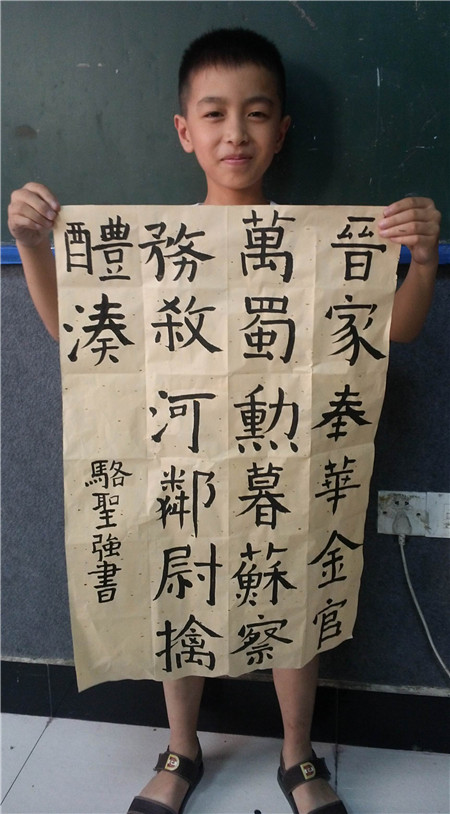 晉家奉華金官
萬蜀勲暮蘇察
務殺河鄰尉擒
醴湊
駱聖強書